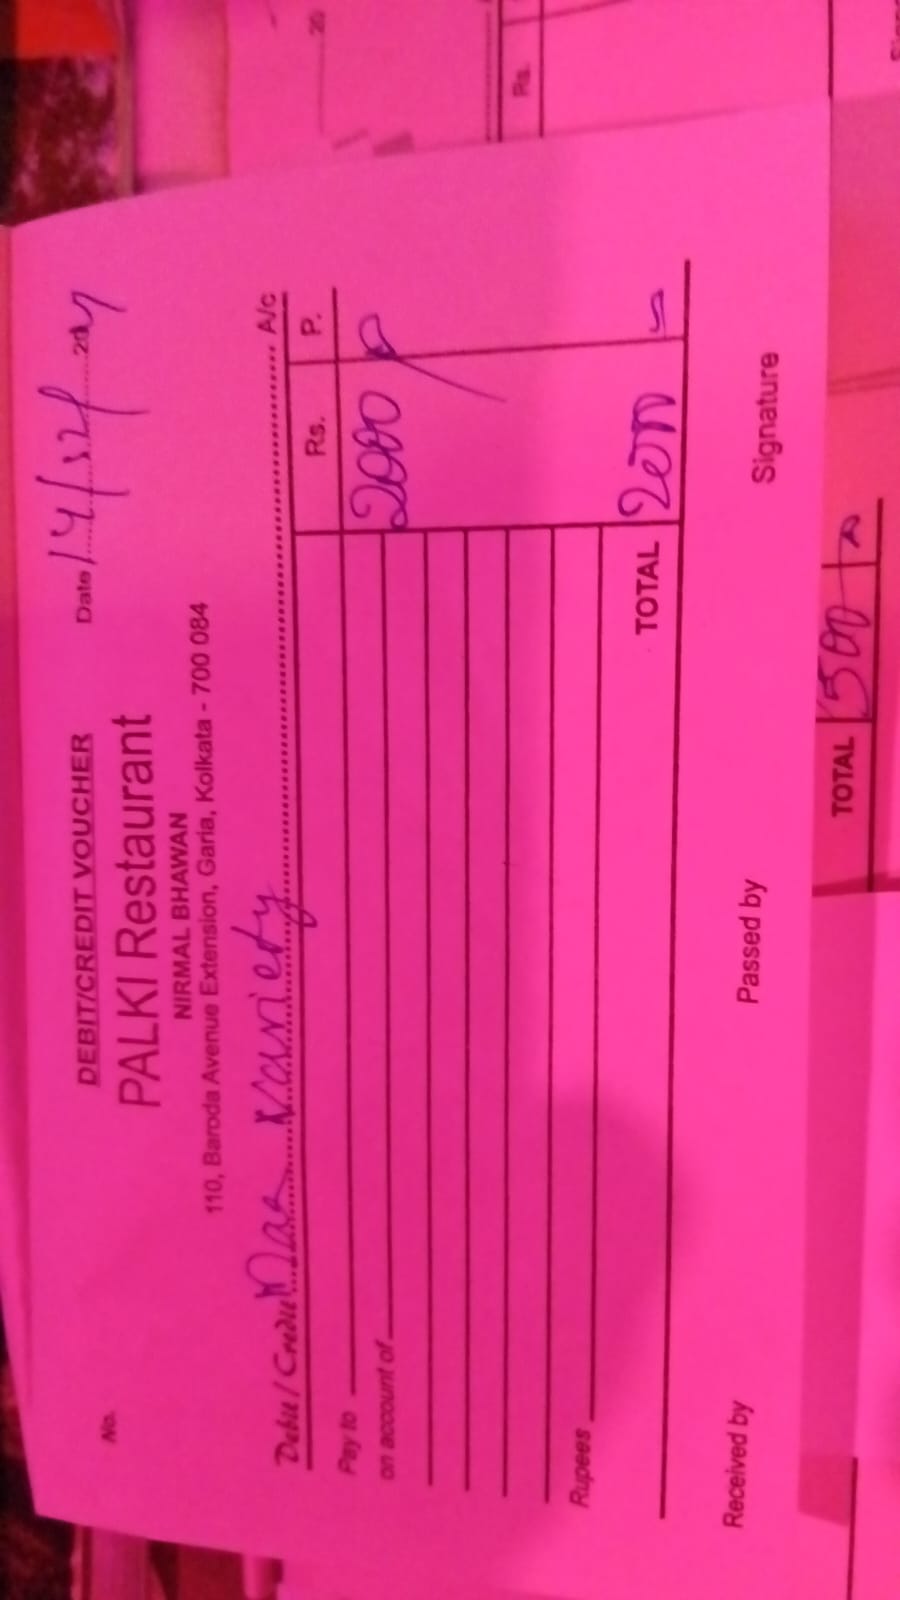 No.
DEBIT/CREDIT VOUCHER
Date 14/12/ 20
PALKI Restaurant
NIRMAL BHAWAN
110, Baroda Avenue Extension, Garia, Kolkata - 700 084
Debit / Credit Maa Variety A/c
Rs. P.
Pay to 2000/
on account of
Rupees
TOTAL 2000
Received by Passed by Signature
TOTAL 500
20
Rs.